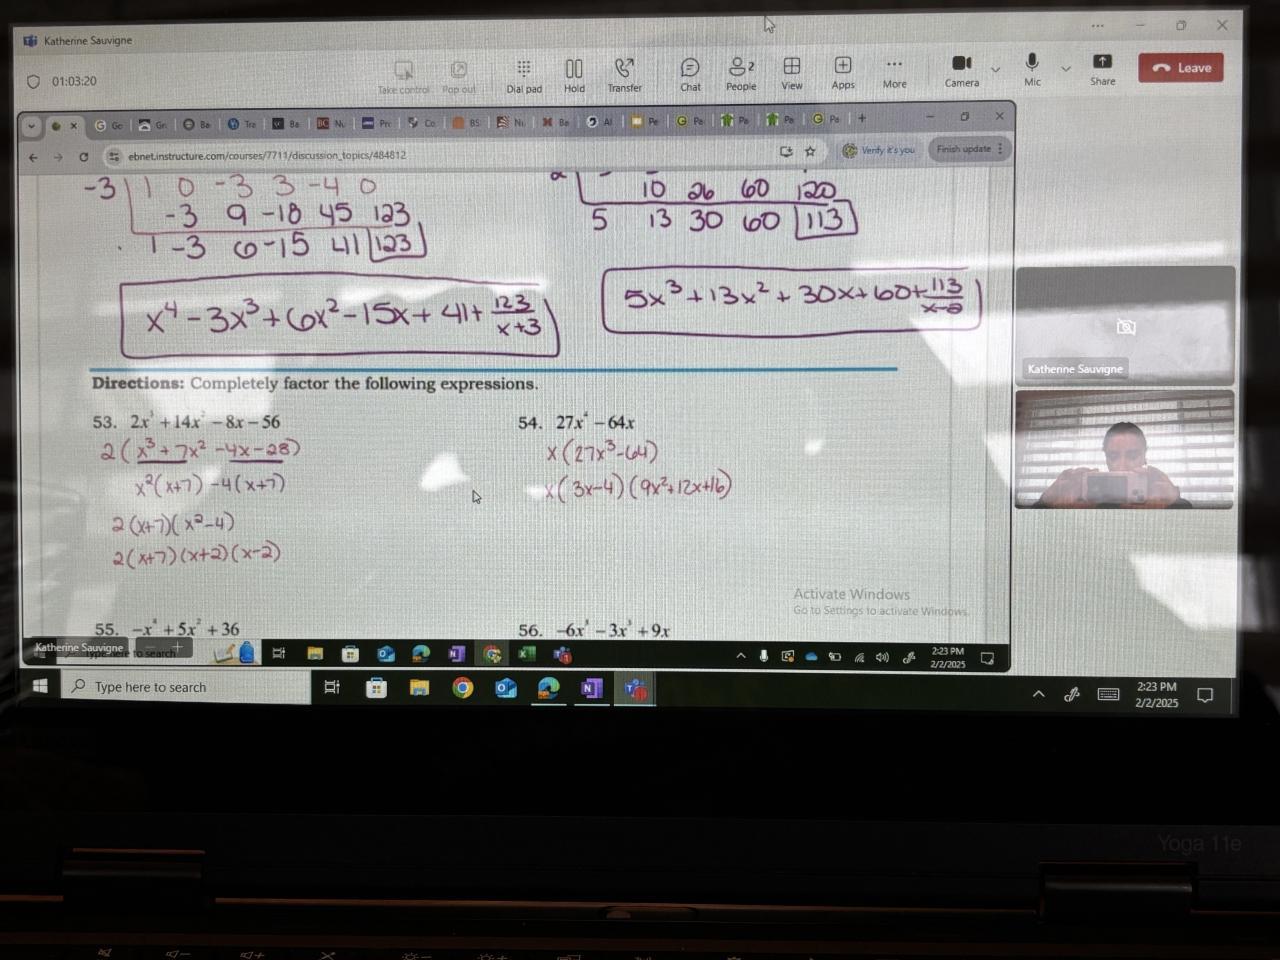 Katherine Sauvigne
01:03:20
Take control Pop out Dial pad Hold Transfer Chat People 2 View Apps More Camera Mic Share Leave
Go Gr Ba Tra Ba Nu Pro Co BS Nu Ba Al Pe Pa Pa Pa Pa
ebnet.instructure.com/courses/7711/discussion_topics/484812 Verify it's you Finish update
-3 1 0 -3 3 -4 0
-3 9 -18 45 123
1 -3 6 -15 41 123
10 26 60 120
5 13 30 60 113
x⁴ - 3x³ + 6x² - 15x + 41 + 123/x+3
5x³ + 13x² + 30x + 60 + 113/x-2
Katherine Sauvigne
Directions: Completely factor the following expressions.
53. 2x³ + 14x² - 8x - 56
2(x³ + 7x² - 4x - 28)
x²(x+7) - 4(x+7)
2(x+7)(x²-4)
2(x+7)(x+2)(x-2)
54. 27x⁴ - 64x
x(27x³-64)
x(3x-4)(9x²+12x+16)
Activate Windows
Go to Settings to activate Windows.
55. -x⁴ + 5x² + 36
56. -6x⁵ - 3x³ + 9x
Katherine Sauvigne
Type here to search
2:23 PM
2/2/2025
Type here to search
2:23 PM
2/2/2025
Yoga 11e